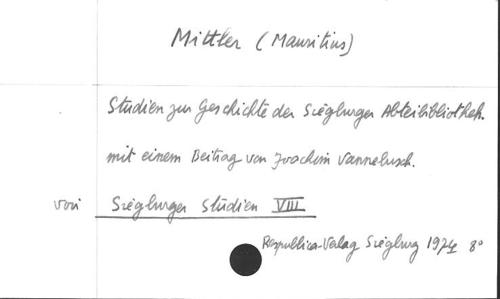 Mittler (Mauritius)
Studien zur Geschichte der Siegburger Abteibibliothek.
mit einem Beitrag von Joachim Vennebusch.
von Siegburger Studien VIII
Respublica-Verlag Siegburg 1974 8°